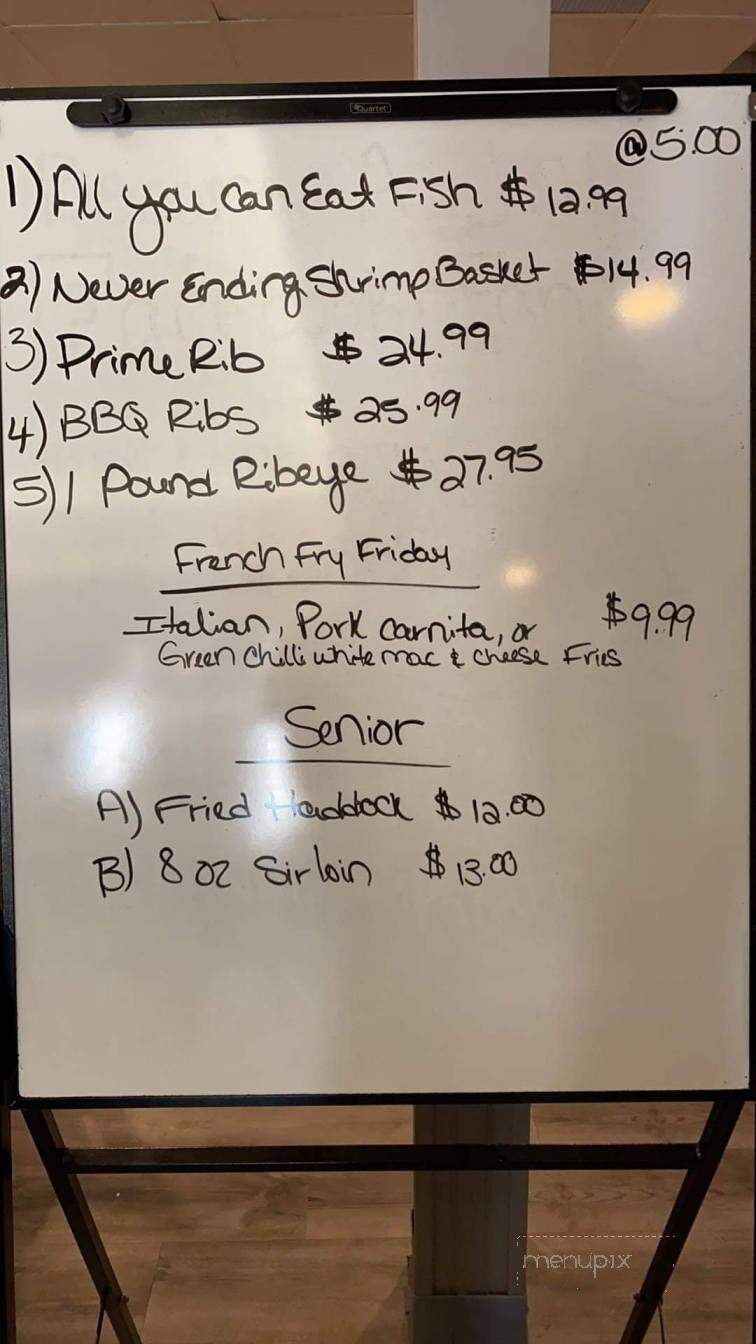 Quartet
@5:00
1) All you can Eat Fish $12.99
2) Never Ending Shrimp Basket $14.99
3) Prime Rib $24.99
4) BBQ Ribs $25.99
5) 1 Pound Ribeye $27.95
French Fry Friday
Italian, Pork carnita, or $9.99
Green Chilli white mac & cheese Fries
Senior
A) Fried Haddock $12.00
B) 8 oz Sirloin $13.00
menupix